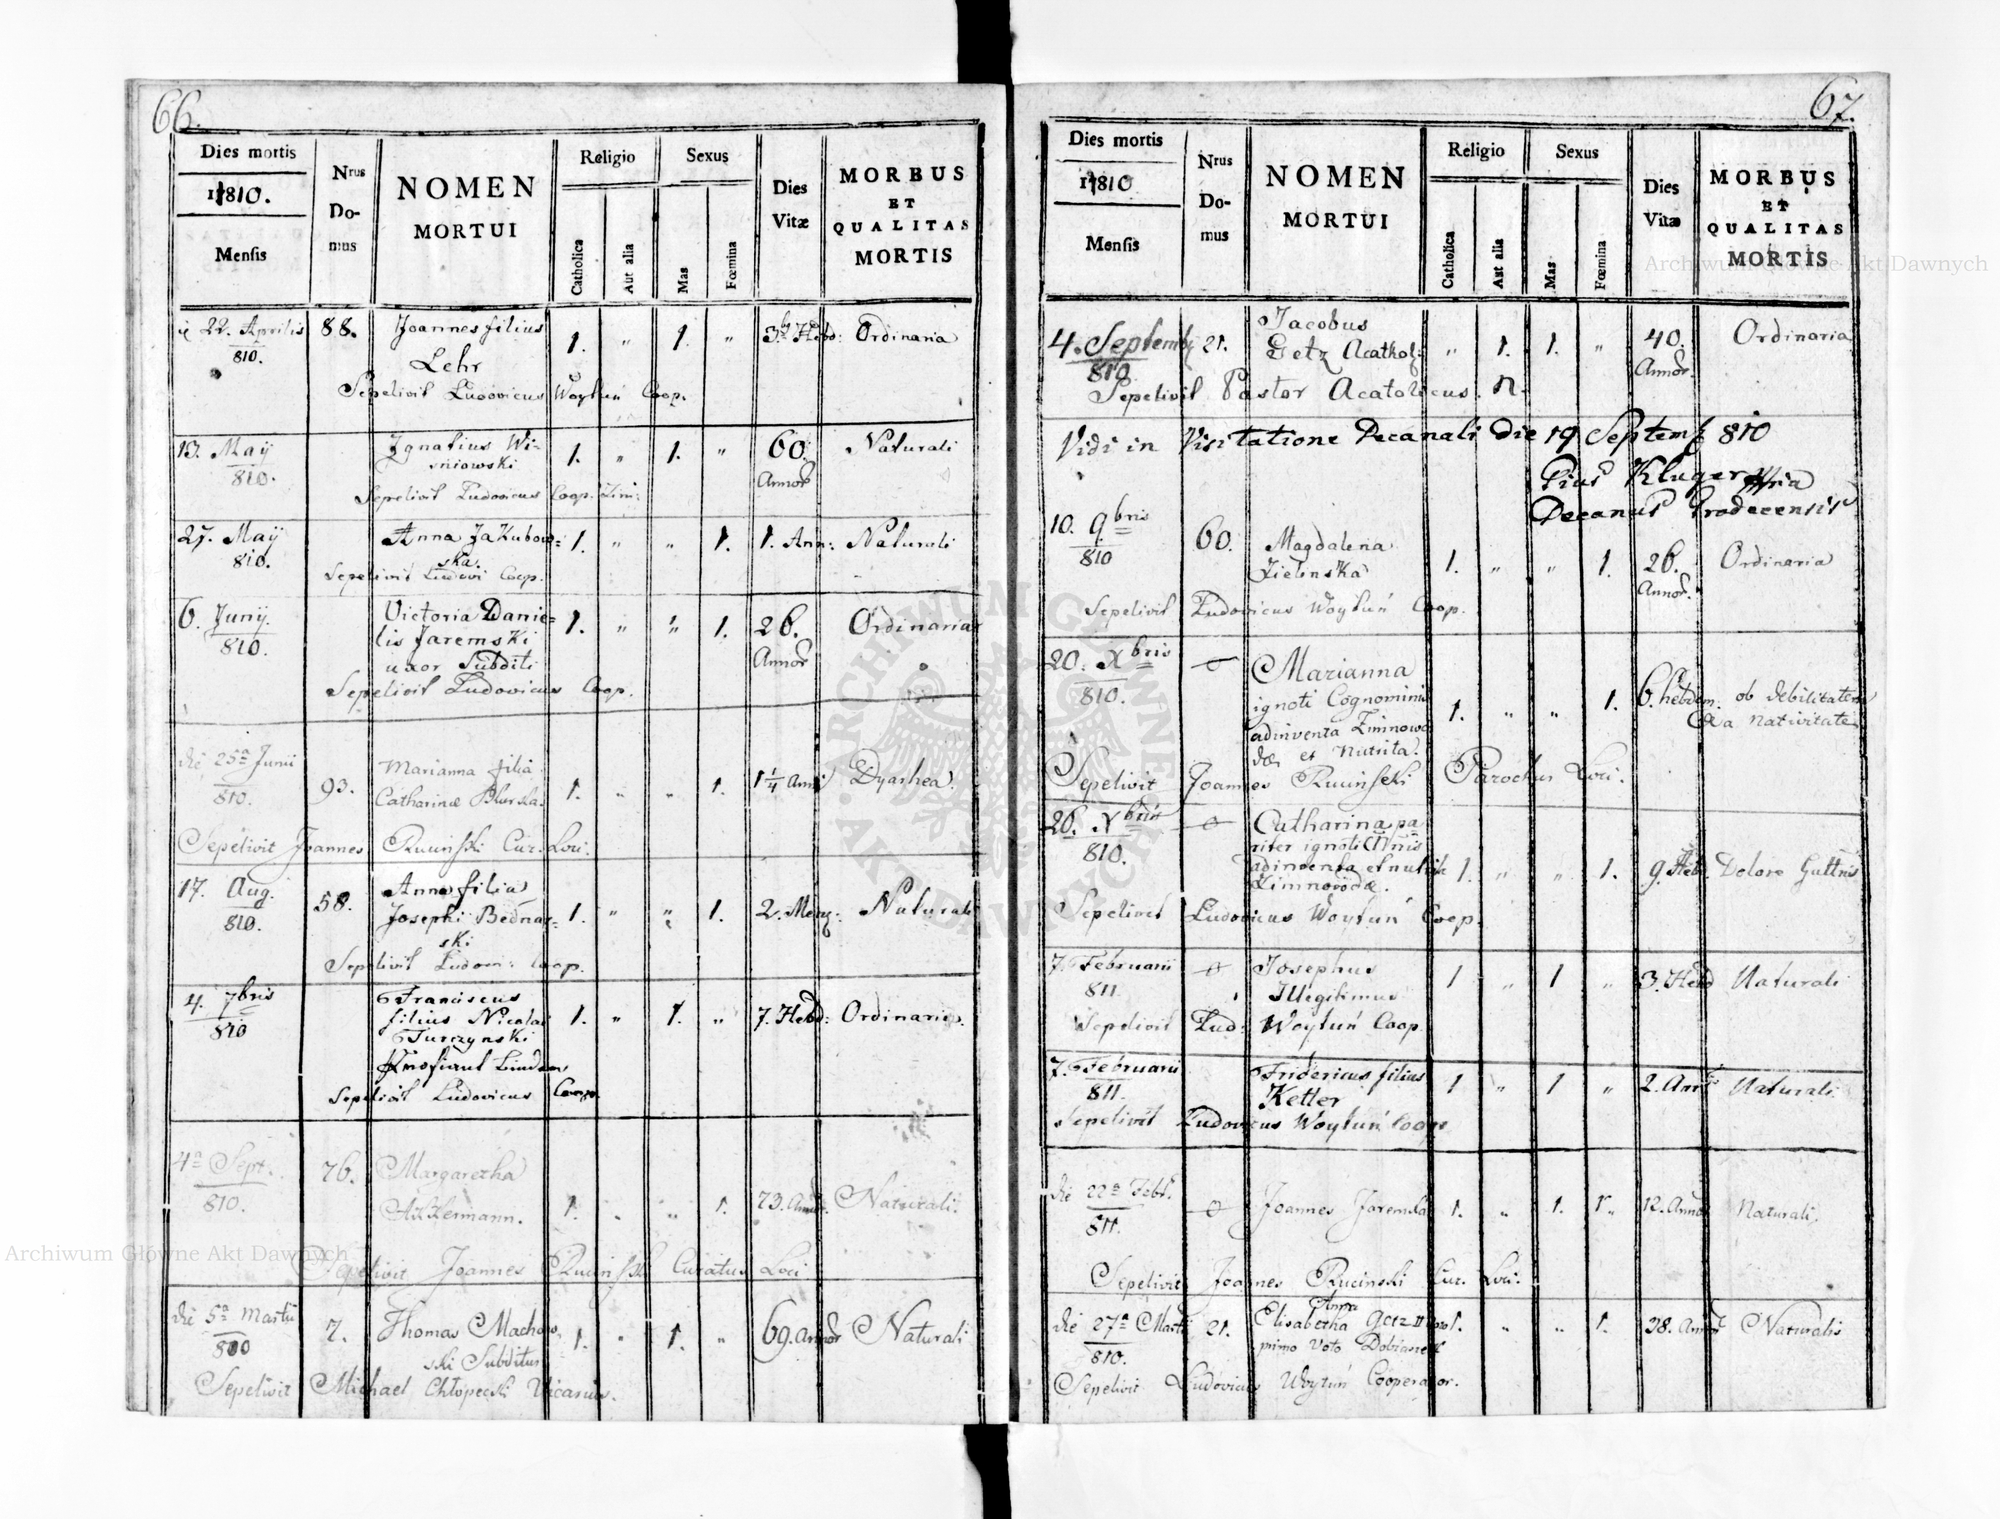 66.
Dies mortis
1810.
Mensis
Nrus
Do-
mus
NOMEN
MORTUI
Religio
Catholica
Aut alia
Sexus
Mas
Fœmina
Dies
Vitæ
MORBUS
ET
QUALITAS
MORTIS
22. Aprilis 88. Joannes filius 1. " 1. " 3 Hebd: Ordinaria
810. Lehr
Sepelivit Ludovicus Woytuń Coop.
13. May Ignatius Wi- 1. " 1. " 60. Naturali
810. sniowski Annor
Sepelivit Ludovicus Coop.
27. May Anna Jakubow= 1. " " 1. 1. Ann: Naturali
810. ska.
Sepelivit Ludovi Coop.
6. Junij. Victoria Danie= 1. " " 1. 26. Ordinaria
810. lis Jaremski Annor
uxor Subditi
Sepelivit Ludovicus Coop.
die 25a Junii 93. Marianna filia 1. " " 1. 1 1/4 Anni Dyarhea.
810. Catharinæ
Sepelivit Joannes Ruciński Cur. Loci.
17. Aug. 58. Anna filia 1. " " 1. 2. Naturali
810. Josephi Bednar=
ski
Sepelivit Ludovi: Coop.
4. 7bris Franciscus 1. " 1. " 7. Hebd: Ordinaria.
810 filius Nicolai
Turczynski
Sepelivit Ludovicus Coop.
4a Sept. 76. Margaretha 1. " " 1. 73. Naturali.
810. Akkermann.
Sepelivit Joannes Curatus Loci
die 5a Martii 7. Thomas Machow 1. " 1. " 69. Annor Naturali
810 ski Subditus
Sepelivit Michael Chłopecki Vicarius.
67.
Dies mortis
1810
Mensis
Nrus
Do-
mus
NOMEN
MORTUI
Religio
Catholica
Aut alia
Sexus
Mas
Fœmina
Dies
Vitæ
MORBUS
ET
QUALITAS
MORTIS
4. Septemb 21. Jacobus " 1. 1. " 40. Ordinaria
810 Getz Acathol: Annor.
Sepelivit Pastor Acatolicus.
Vidi in Visitatione Decanali die 19 Septem 810
Pius Kluger
Decanus Grodecensis
10. 9bris 60. Magdalena 1. " " 1. 26. Ordinaria
810 Zielenska Annor.
Sepelivit Ludovicus Woytuń Coop.
20. Xbris o Marianna 1. " " 1. 6. hebdom. ob debilitatem
810. ignoti Cognominis a nativitate
adinventa Zimnowo
dæ et Nutrita.
Sepelivit Joannes Ruciński Parochus Loci.
26. Xbris o Catharina pa 1. " " 1. 9. Heb. Dolore Guttris
810. riter ignoti
adinventa et nutrita
Zimnovodæ.
Sepelivit Ludovicus Woytuń Coop.
7. Februarii o Josephus 1 " 1 " 3. Hebd Naturali
811. Illegitimus
Sepelivit Lud: Woytuń Coop.
7. Februarii Fridericus filius 1 " 1 " 2. Naturali
811. Ketter
Sepelivit Ludovicus Woytuń Coop
die 22a Febr. o Joannes Jaremski 1. " 1. 12. Annor Naturali,
811.
Sepelivit Joannes Ruciński Cur. Loci.
die 27a Marti 21. Elisabetha Anna Getz 1. " " 1. 38. Naturalis
810. primo Voto
Sepelivit Ludovicus Woytuń Cooperator.
Archiwum Główne Akt Dawnych
Archiwum Główne Akt Dawnych
ARCHIWUM GŁÓWNE AKT DAWNYCH